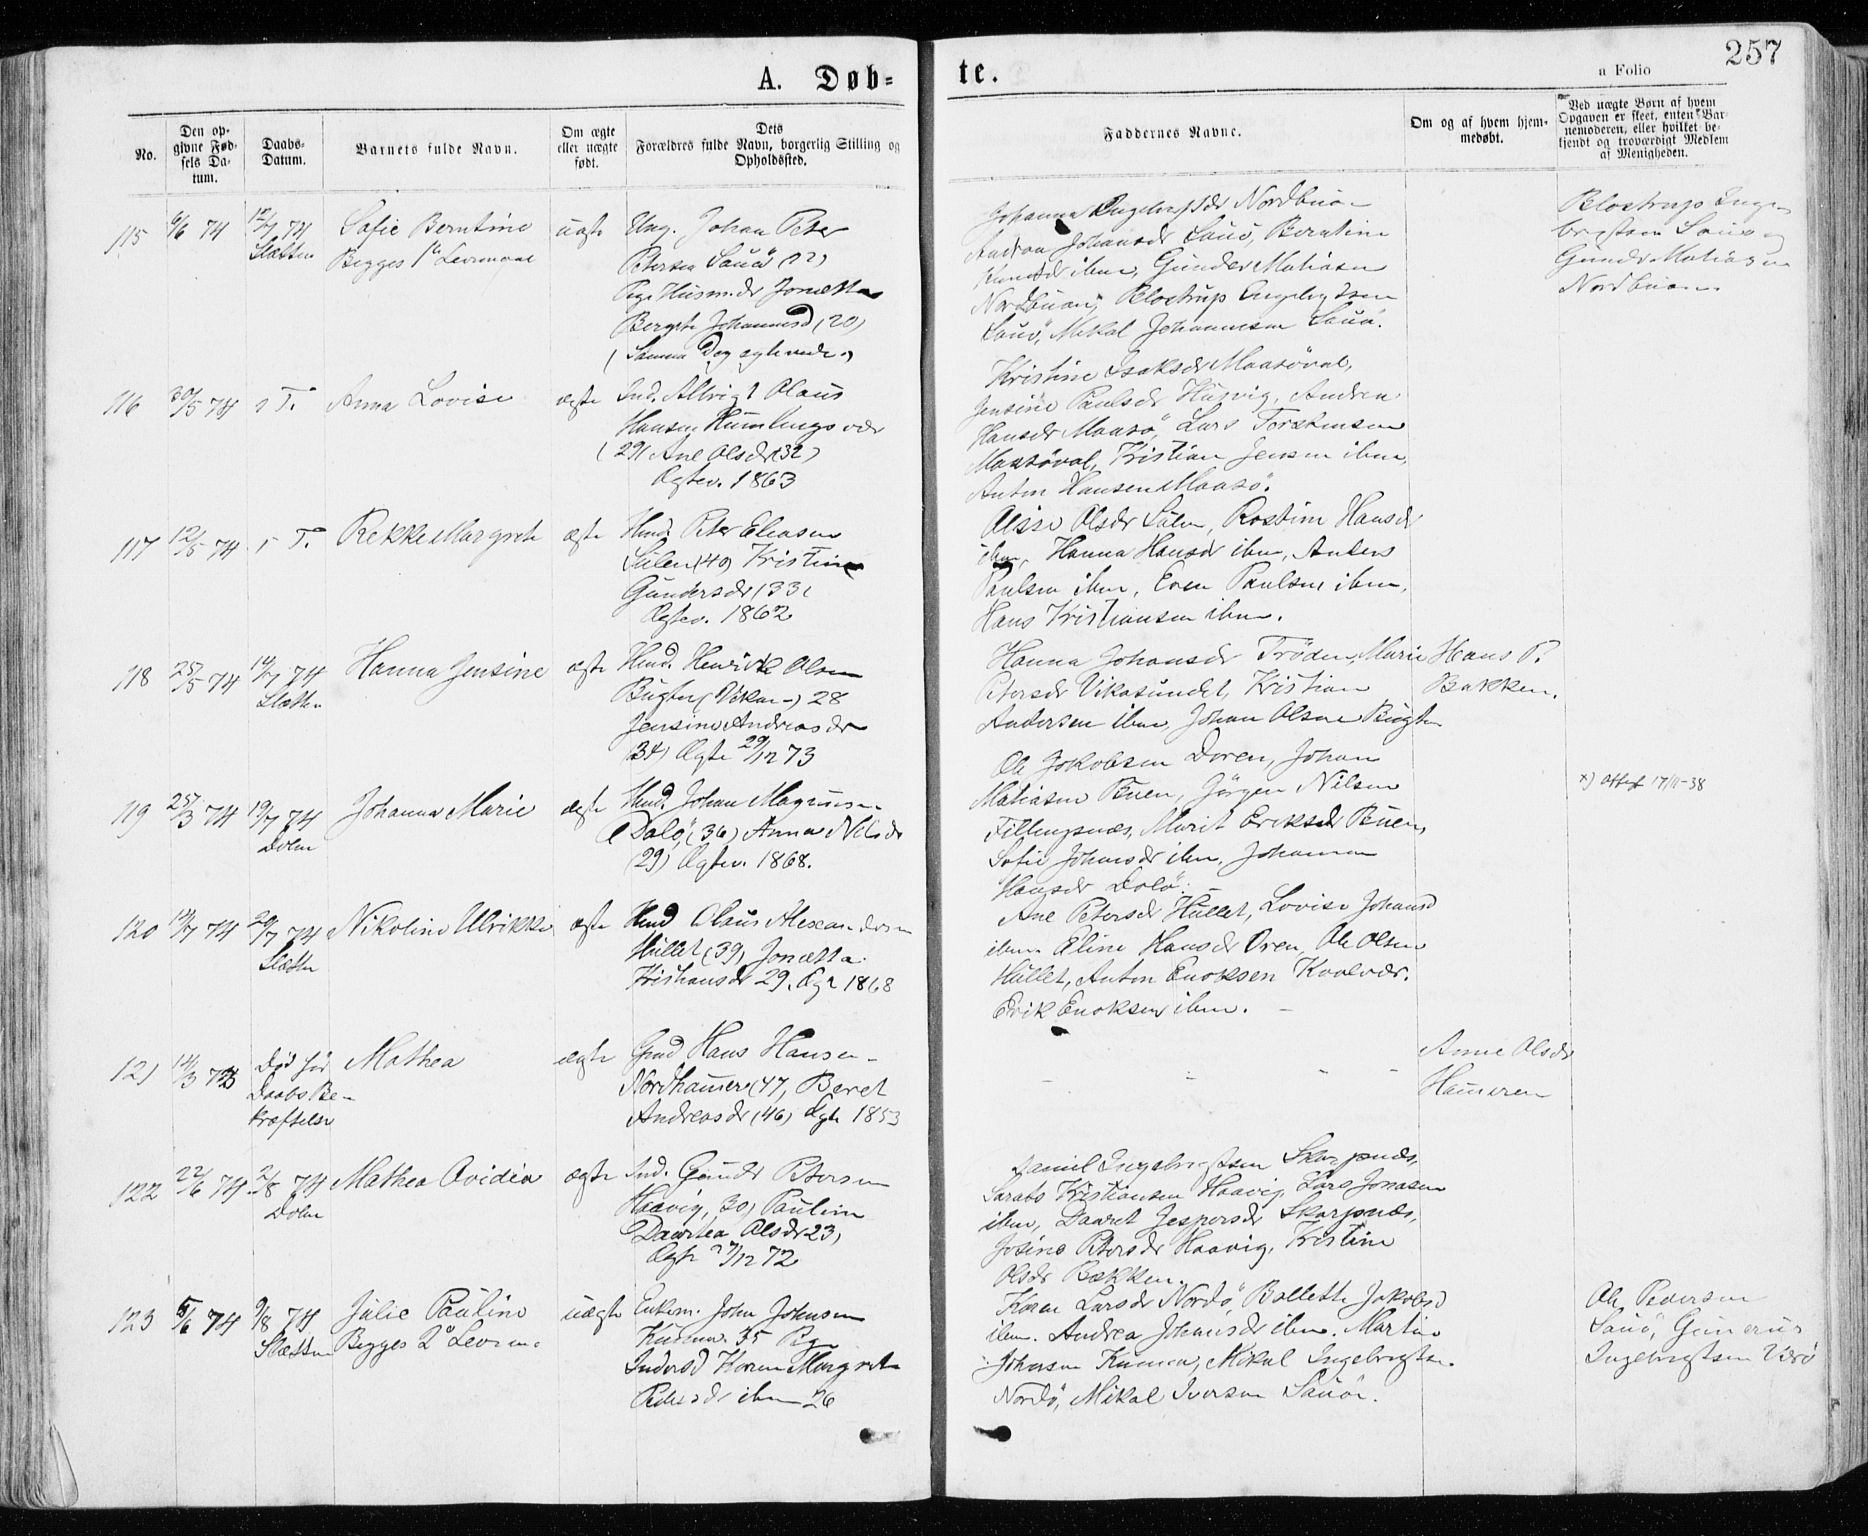 257
A. Døb-
te.
a Folio
No.
Den op-
givne Fød-
sels Da-
tum.
Daabs-
Datum.
Barnets fulde Navn.
Om ægte
eller uægte
født.
Dets
Forældres fulde Navn, borgerlig Stilling og
Opholdssted.
Faddernes Navne.
Om og af hvem hjem-
medøbt.
Ved uægte Børn af hvem
Opgaven er skeet, enten Bar-
nemoderen, eller hvilket be-
kjendt og troværdigt Medlem
af Menigheden.
115 6/6 74 12/7 74 Sofie Berntine uægte Ung. Johan Peter
Slætten Begges 1ste Leierm
Petersen Sauø (22)
Pige Husm.dr Jonetta
Bergite Johannesd (20)
(Samme Dag ægteviede)
Johanna Engebrigtsdr Nordbuan
Andrea Johansdr Sauø, Berntine
Knutsdr ibm, Gunder Matiasen
Nordbuan, Blostrup Engebrigtsen
Sauø, Mikal Johannesen Sauø.
Blostrup Enge-
brigtsen Sauø og
Gunder Matiasen
Nordbuan.
116 30/5 74 s T. Anna Lovise ægte Ind. Albrigt Olaus
Hansen Humlingsvær
(29) Ane Olsdr (32)
Ægtev. 1863
Kristine Isaksdr Maasøval,
Jensine Paulsdr Husvig, Andrea
Hansdr Maasø, Lars Torstensen
Maasøval, Kristian Jensen ibm,
Anton Hansen Maasø.
117 12/5 74 s T. Rekke Margrete ægte Hmd. Peter Eliasen
Sulen (40) Kristine
Gundersdr (33)
Ægtev. 1862
Olsdr Sulen, Rostine Hansdr
ibm, Hanna Hansdr ibm, Anders
Paulsen ibm, Even Paulsen ibm,
Hans Kristiansen ibm.
118 25/5 74 19/7 74 Hanna Jensine ægte Hmd. Henrik Olsen
Slætten
Bugten (Vikan) 28
Jensine Andreasdr
(34) Ægte 29/12 73
Hanna Johansdr Trøden, Marie
Petersdr Vikasundet, Kristian
Andersen ibm, Johan Olsen Bugten
Hans P.
Bakken.
119 25/3 74 19/7 74 Johanna Marie ægte Hmd. Johan Magnus
Dolm
Dolø, (36) Anna Nilsdr
(29) Ægtev. 1868.
Ole Jakobsen Doren, Johan
Matiasen Buen, Jörgen Nilsen
Fillingsnæs, Marit Eriksdr Buen,
Sofie Johansdr ibm, Johanna
Hansdr Dolø.
x) Attest 17/11-38
120 14/7 74 20/7 74 Nikoline Ulrikke ægte Hmd Olaus Alexandersen
Slætten
Hullet (39) Jonetta
Kristiansdr 29. Ægt 1868
Ane Petersdr Hullet, Lovise Johansd
ibm. Eline Hansdr Oren, Ole Olsen
Hullet, Anton Enoksen Kvalvær.
Erik Enoksen ibm.
121 14/3 73 Død før Mathea ægte Gmd Hans Hansen
Daabs Be-
kræftelse
Nordhammer (47, Beret
Andreasdr (46) Ægte 1853
Anne Olsdr
Hameren
122 22/6 74 2/8 74 Mathea Ovidia ægte Ind. Gunder Petersen
Dolm
Haavig, 30, Pauline
Dawitea Olsdr 23,
Ægte 27/12 72
Daniel Ingebrigtsen Skarpnæs,
Kristiansen Haavig, Lars Jonasen
ibm, Daaret Jespersdr Skarpnæs,
Josine Petersdr Haavig, Kristine
Olsdr Bækken.
123 5/6 74 9/8 74 Julie Pauline uægte Enkem. John Johnsen
Slætten Begges 2det Leierm.
Kunna. 35 Pige
Inderst Karen Margrete
Pedersdr ibm 26
Karen Larsdr Nordø, Bollette Jakobsd
ibm. Andrea Johansdr ibm. Martin
Johnsen Kunna, Mikal Ingebrigtsen
Nordø, Mikal Iversen Sauø.
Ole Pedersen
Sauø, Gunerus
Ingebrigtsen Ulvø